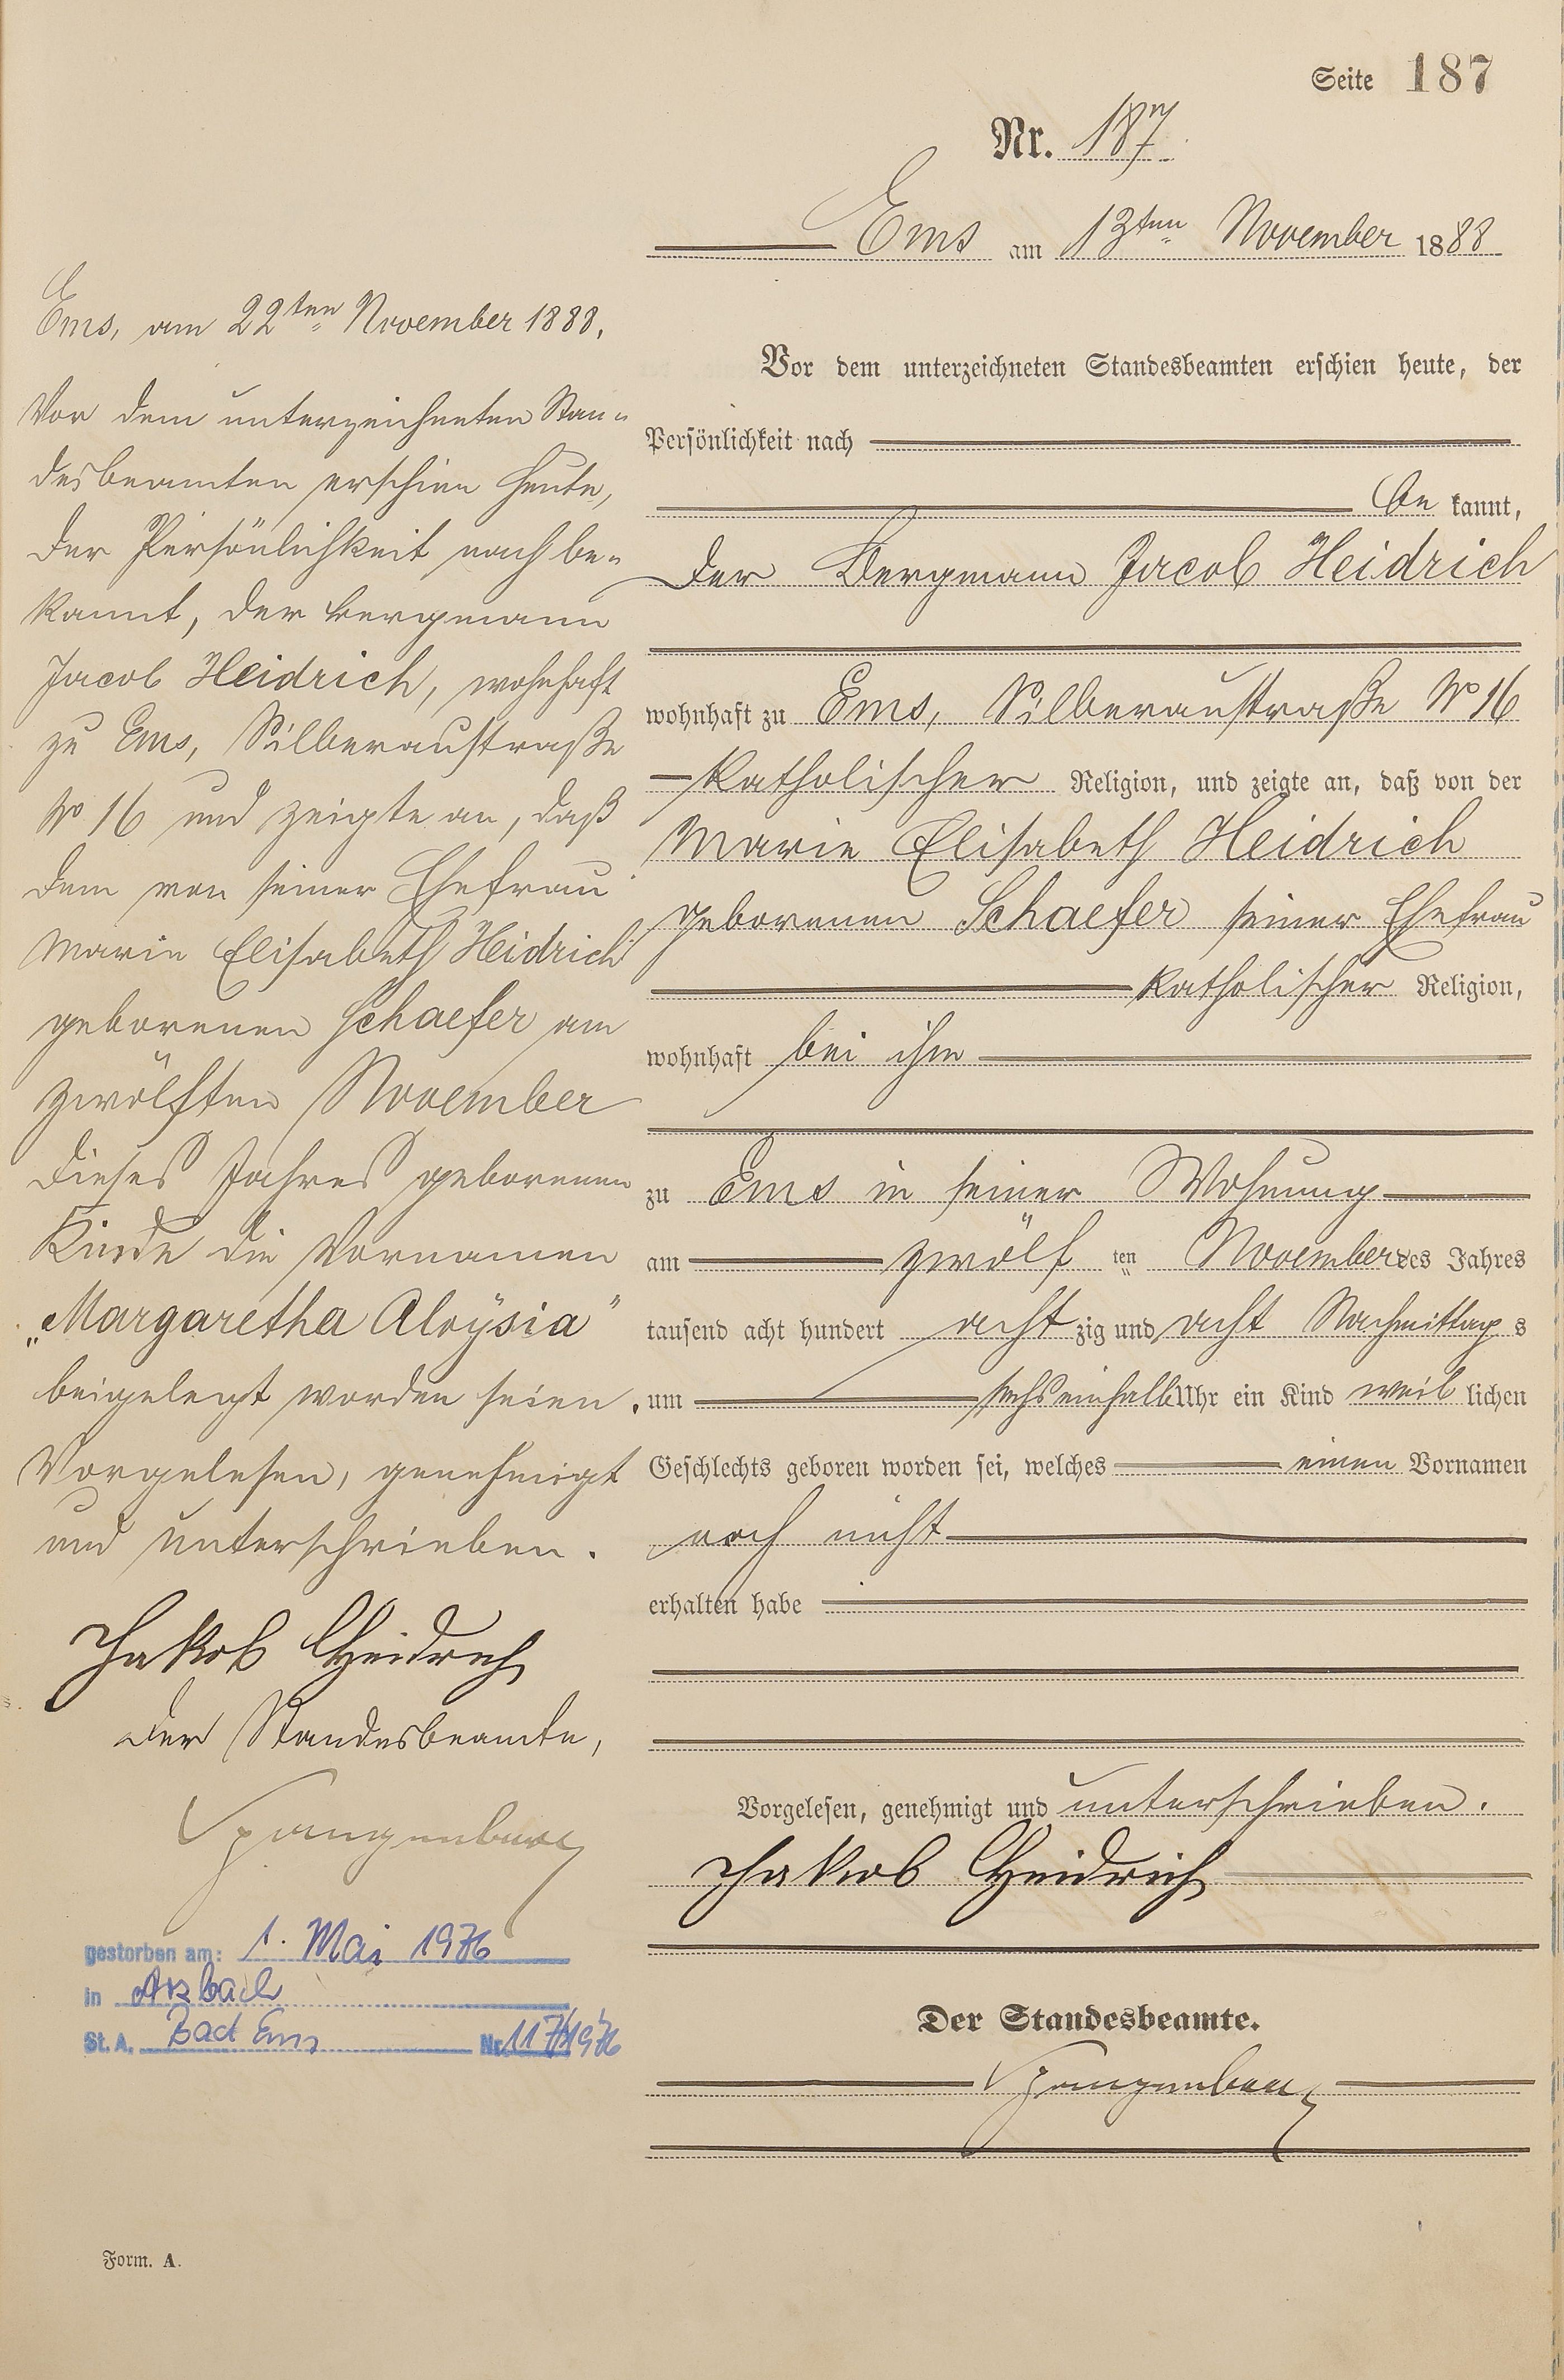 Seite 187
Nr. 187.
Ems am 13ten November 1888
Vor dem unterzeichneten Standesbeamten erschien heute, der
Persönlichkeit nach
be kannt,
der Bergmann Jacob Heidrich
wohnhaft zu Ems, Silberaustraße No 16
katholischer Religion, und zeigte an, daß von der
Marie Elisabeth Heidrich
geborenen Schaefer seiner Ehefrau
katholischer Religion,
wohnhaft bei ihm
zu Ems in seiner Wohnung
am zwölf ten November des Jahres
tausend acht hundert acht zig und acht Nachmittag s
um sechs einhalb Uhr ein Kind weib lichen
Geschlechts geboren worden sei, welches einen Vornamen
noch nicht
erhalten habe
Vorgelesen, genehmigt und unterschrieben.
Jakob Heidrich
Der Standesbeamte.
Spangenberg
Ems, am 22ten November 1888.
Vor dem unterzeichneten Stan-
desbeamten erschien heute,
der Persönlichkeit nach be-
kannt, der Bergmann
Jacob Heidrich, wohnhaft
zu Ems, Silberaustraße
No 16 und zeigte an, daß
dem von seiner Ehefrau
Marie Elisabeth Heidrich
geborenen Schaefer am
zwölften November
dieses Jahres geborenen
Kinde die Vornamen
„Margaretha Aloÿsia"
beigelegt worden seien.
Vorgelesen, genehmigt
und unterschrieben.
Jakob Heidrich
Der Standesbeamte,
Spangenberg
gestorben am: 1. Mai 1976
in Arzbach
St. A. Bad Ems Nr. 117/1976
Form. A.